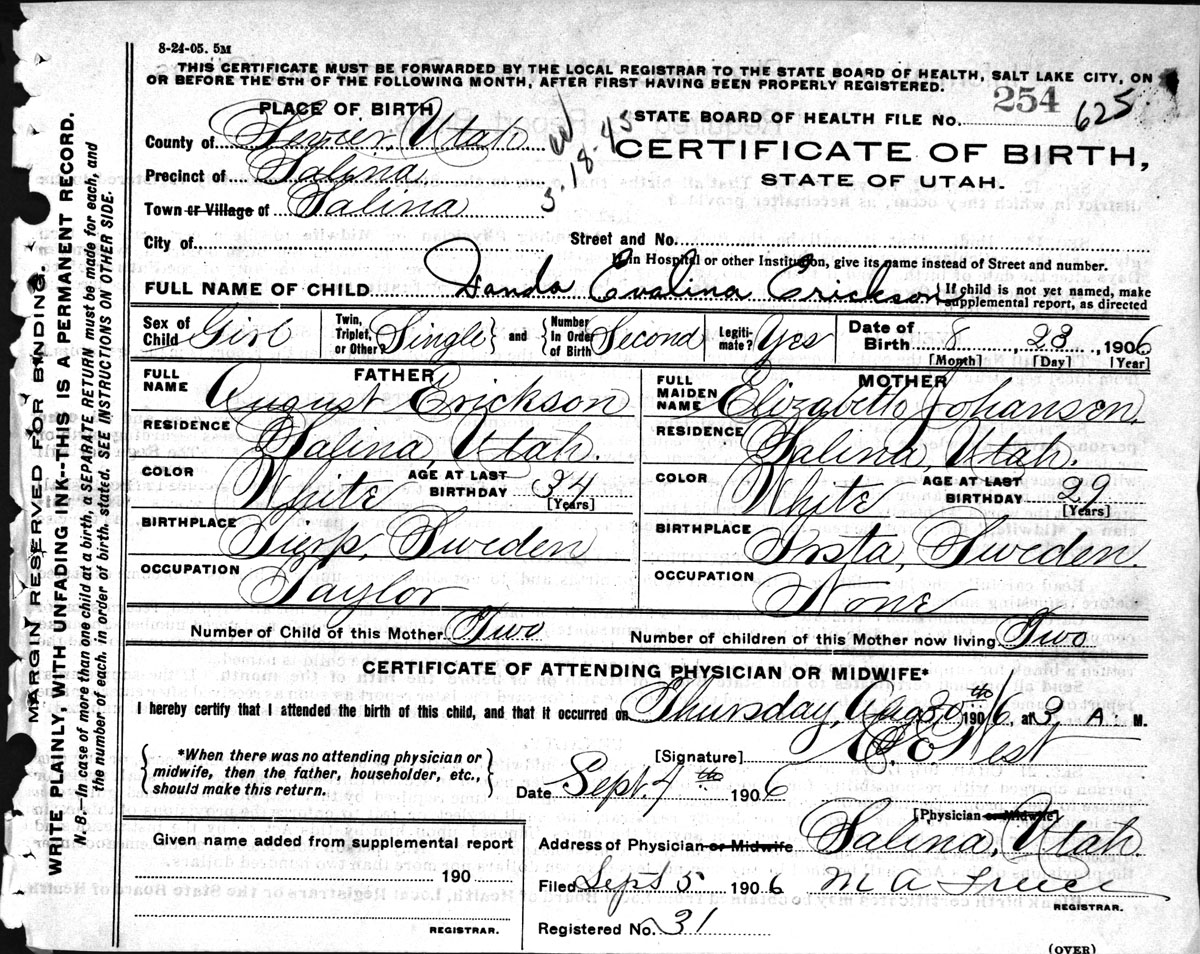 8-24-05. 5M
THIS CERTIFICATE MUST BE FORWARDED BY THE LOCAL REGISTRAR TO THE STATE BOARD OF HEALTH, SALT LAKE CITY, ON
OR BEFORE THE 5TH OF THE FOLLOWING MONTH, AFTER FIRST HAVING BEEN PROPERLY REGISTERED.
254
PLACE OF BIRTH
STATE BOARD OF HEALTH FILE No. 625
County of Sevier, Utah
3-18-45
CERTIFICATE OF BIRTH,
Precinct of Salina
STATE OF UTAH.
Town or Village of Salina
City of Street and No.
If in Hospital or other Institution, give its name instead of Street and number.
FULL NAME OF CHILD Evalina Erickson { If child is not yet named, make supplemental report, as directed
Sex of Child Girl Twin, Triplet, or Other? Single } and { Number In Order of Birth Second Legiti-mate? Yes Date of Birth 8, 23, 1906
[Month] [Day] [Year]
FATHER MOTHER
FULL NAME August Erickson FULL MAIDEN NAME Elizabeth Johansen.
RESIDENCE Salina Utah. RESIDENCE Salina, Utah.
COLOR White AGE AT LAST BIRTHDAY 34 [Years] COLOR White AGE AT LAST BIRTHDAY 29 [Years]
BIRTHPLACE Sweden BIRTHPLACE Sweden.
OCCUPATION Taylor OCCUPATION None
Number of Child of this Mother Two Number of children of this Mother now living Two
CERTIFICATE OF ATTENDING PHYSICIAN OR MIDWIFE*
I hereby certify that I attended the birth of this child, and that it occurred on Thursday, Aug 30th 1906, at 3, A. M.
{ *When there was no attending physician or midwife, then the father, householder, etc., should make this return. }
[Signature] West
Date Sept. 4th 1906
[Physician or Midwife]
Given name added from supplemental report
Address of Physician or Midwife Salina, Utah.
190
Filed Sept 5 1906 M A
REGISTRAR.
REGISTRAR.
Registered No. 31
(OVER)
MARGIN RESERVED FOR BINDING.
WRITE PLAINLY, WITH UNFADING INK--THIS IS A PERMANENT RECORD.
N.B.--In case of more than one child at a birth, a SEPARATE RETURN must be made for each, and
the number of each, in order of birth, stated. SEE INSTRUCTIONS ON OTHER SIDE.